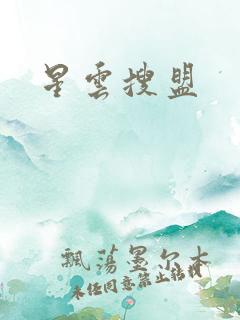 星雲搜盟
飄蕩墨尔本
未经同意禁止转载